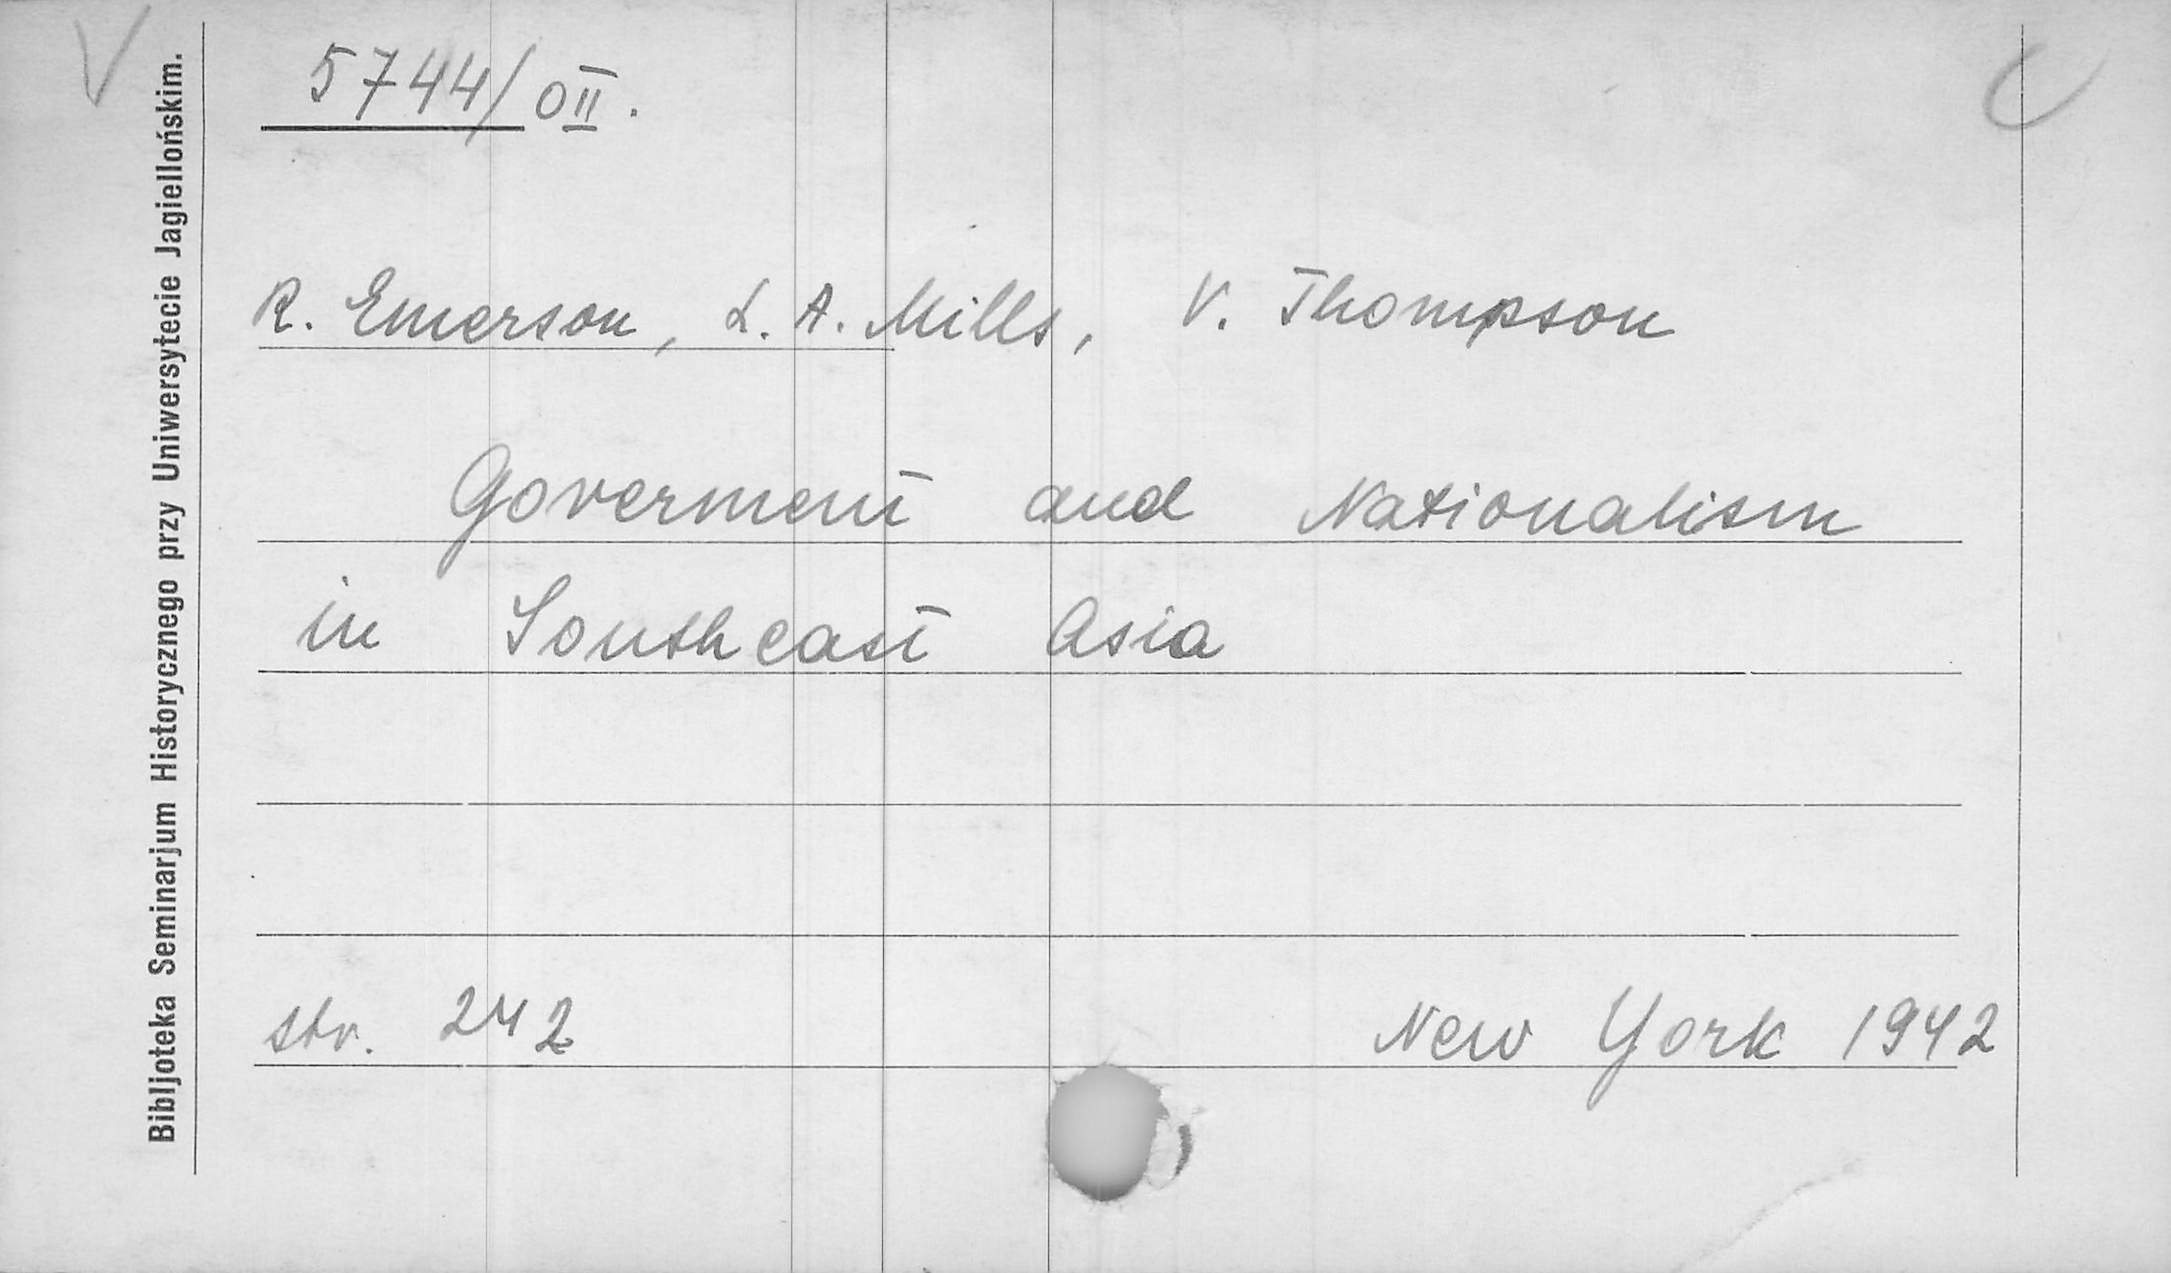 Bibljoteka Seminarjum Historycznego przy Uniwersytecie Jagiellońskim.
5744/OII.
R. Emerson, L. A. Mills, V. Thompson
Goverment and Nationalism
in Southeast Asia
str. 242
New York 1942